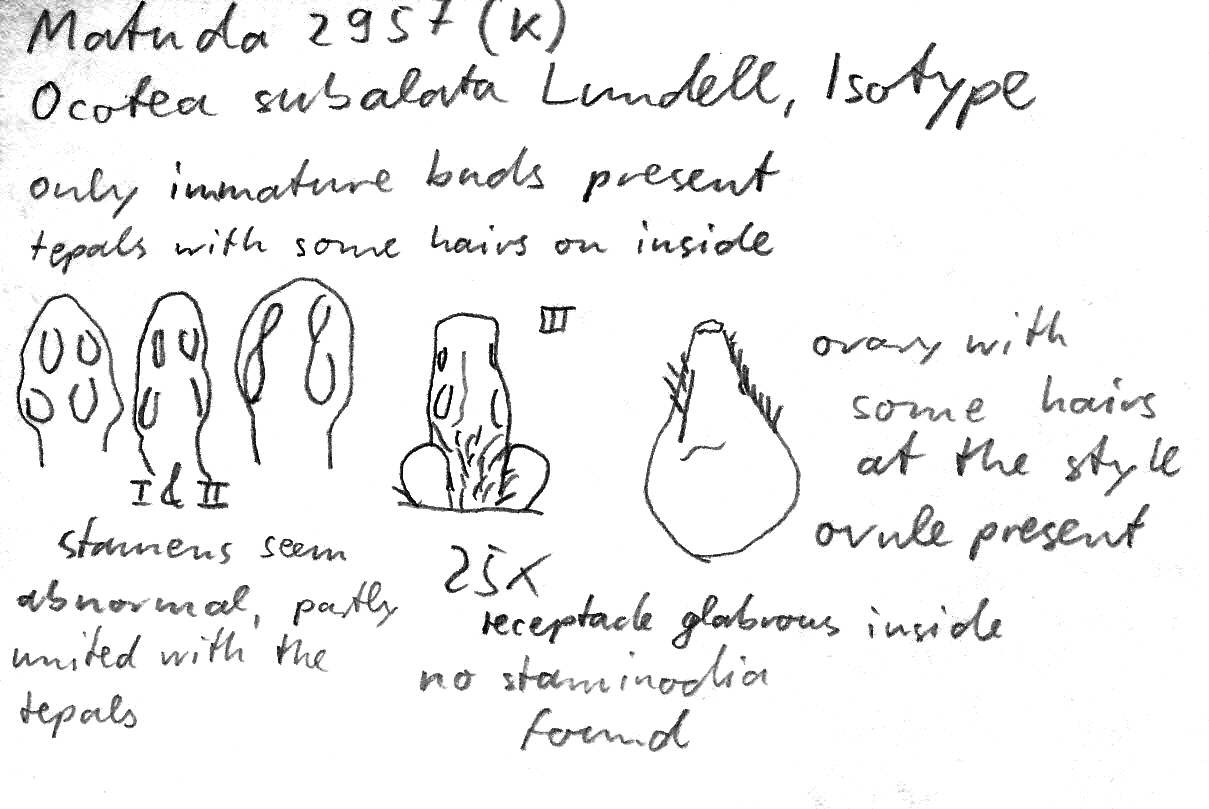 Matuda 2957 (K)
Ocotea subalata Lundell, Isotype
only immature buds present
tepals with some hairs on inside
III
ovary with
some hairs
at the style
ovule present
I & II
stamens seem
abnormal, partly
united with the
tepals
25x
receptacle glabrous inside
no staminodia
found